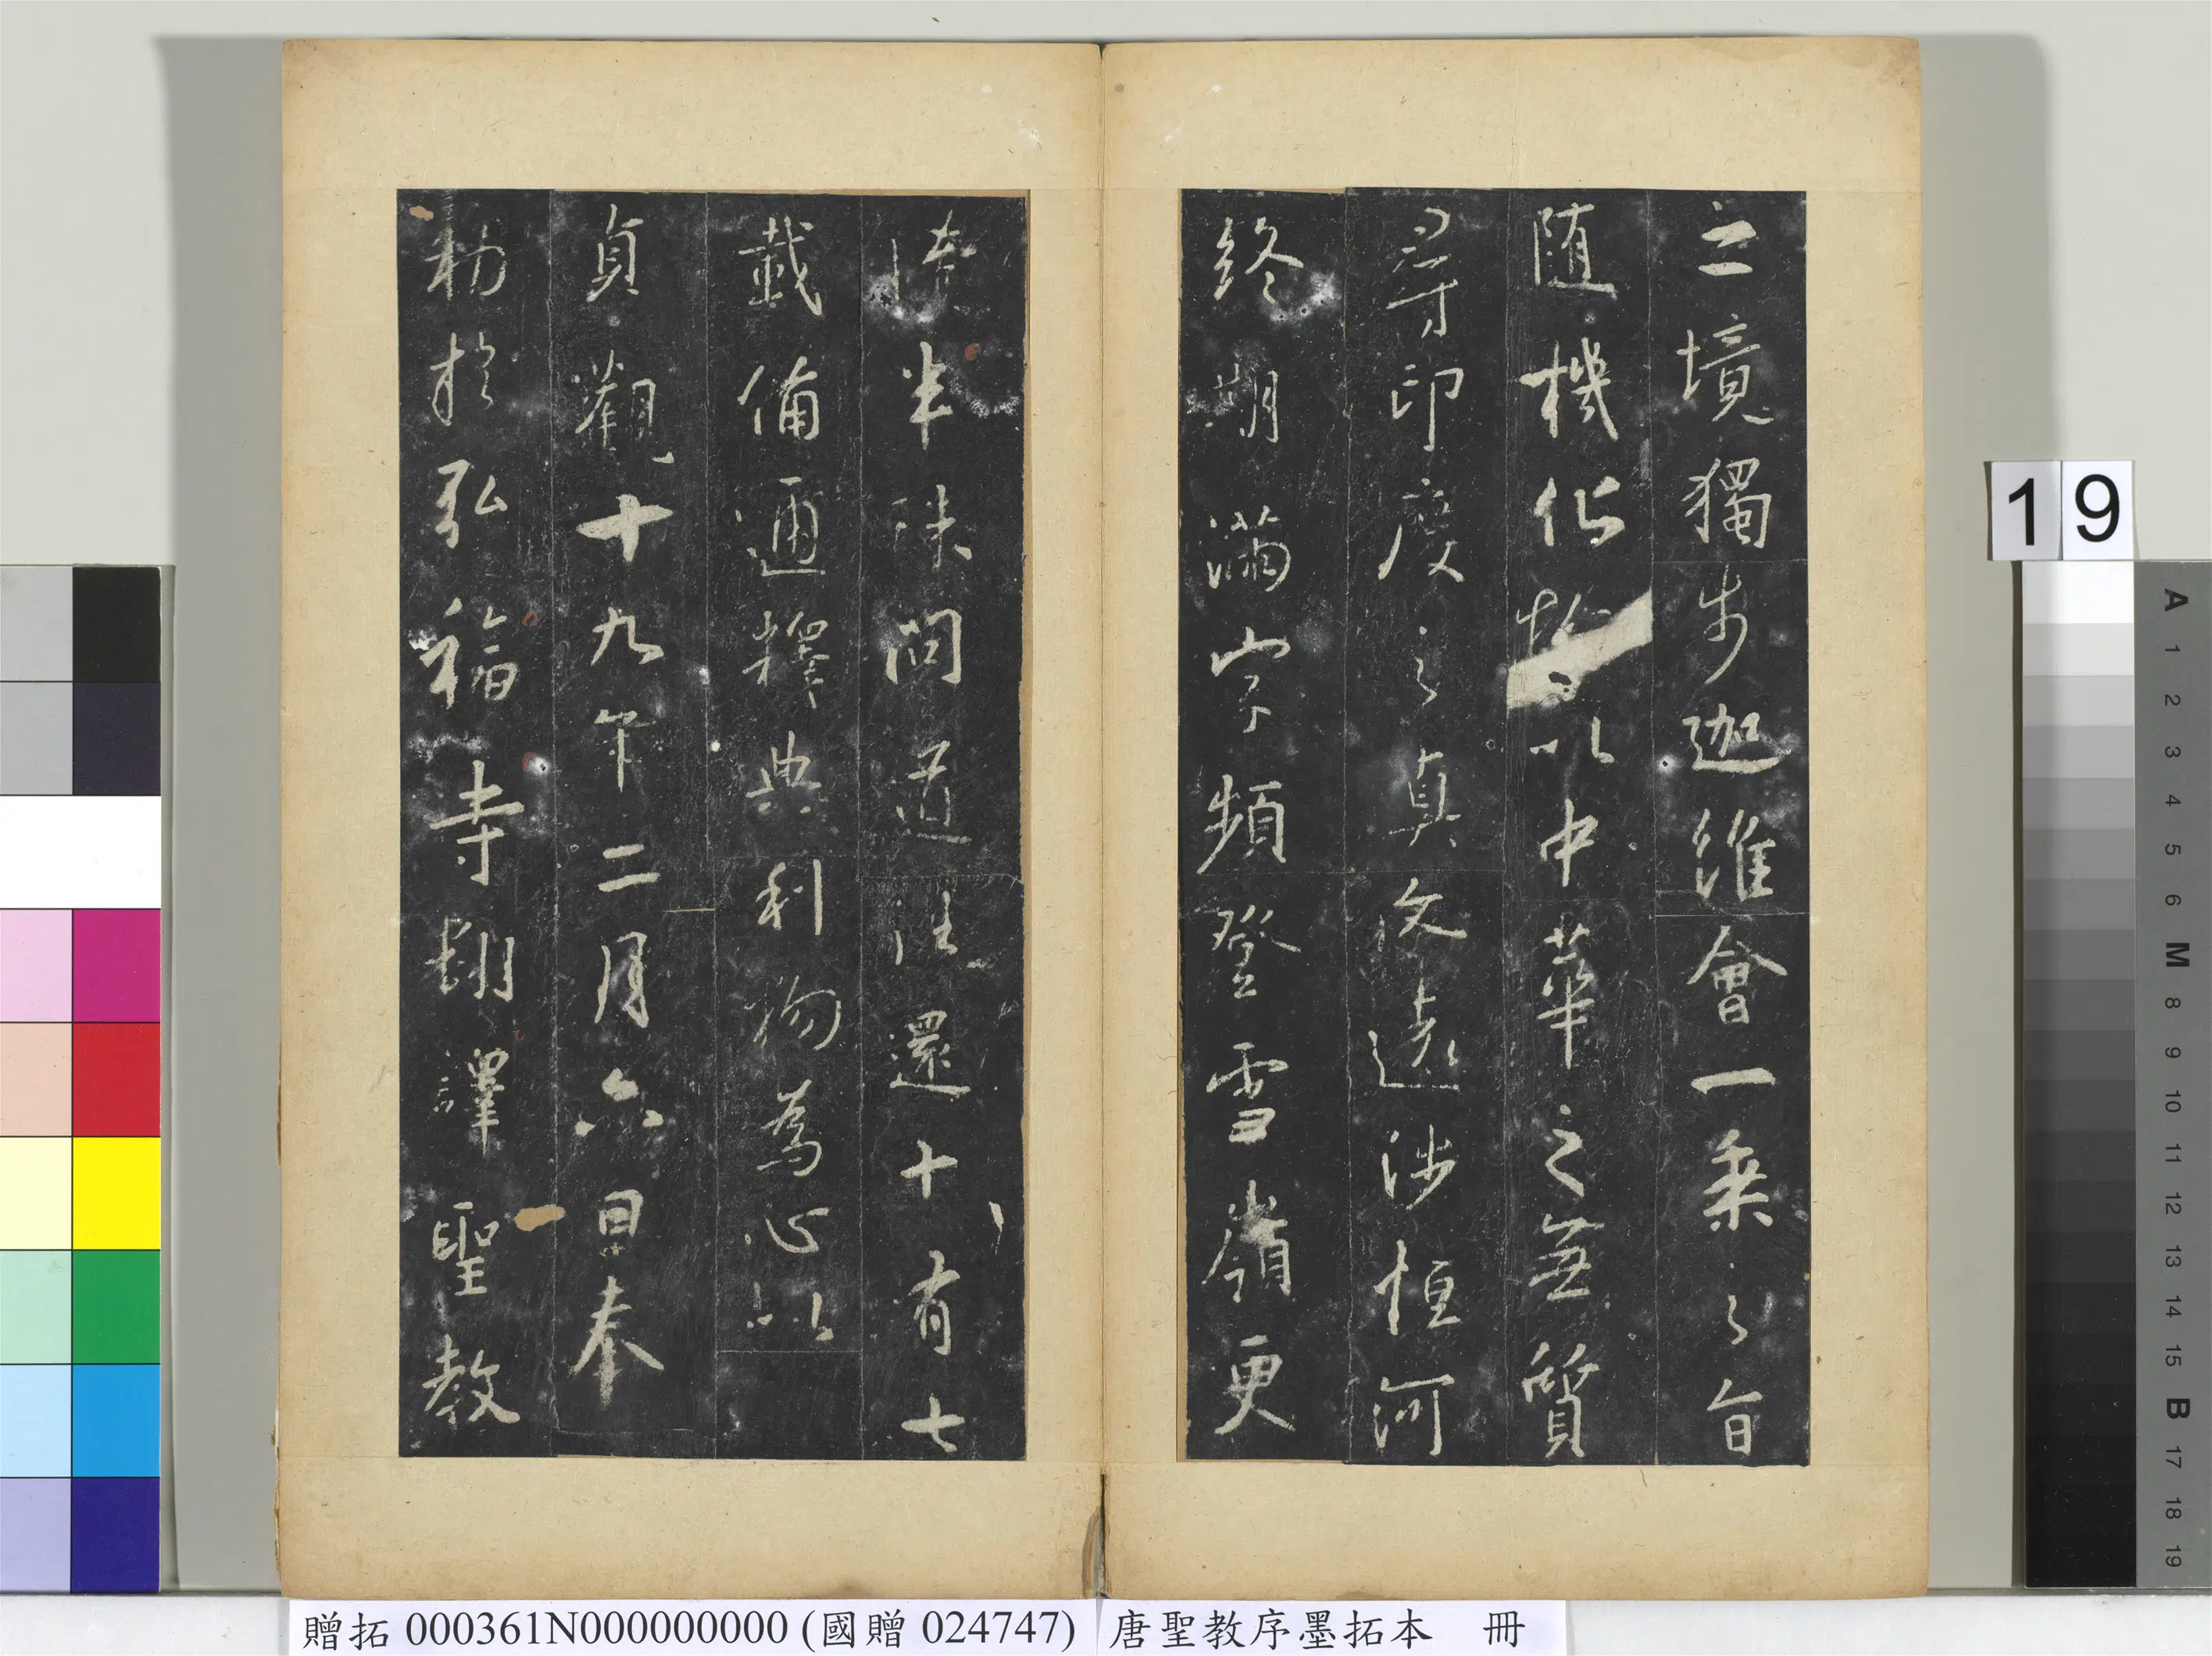 之境獨步迦維會一乘之旨
随機化物以中華之無質
尋印度之真文遠涉恒河
終期滿字頻登雪嶺更
獲半珠問道往還十有七
載備通釋典利物為心以
貞觀十九年二月六日奉
勑於弘福寺翻譯聖教
19
A
1
2
3
4
5
6
M
8
9
10
11
12
13
14
15
B
17
18
19
贈拓 000361N000000000 (國贈 024747)
唐聖教序墨拓本 冊